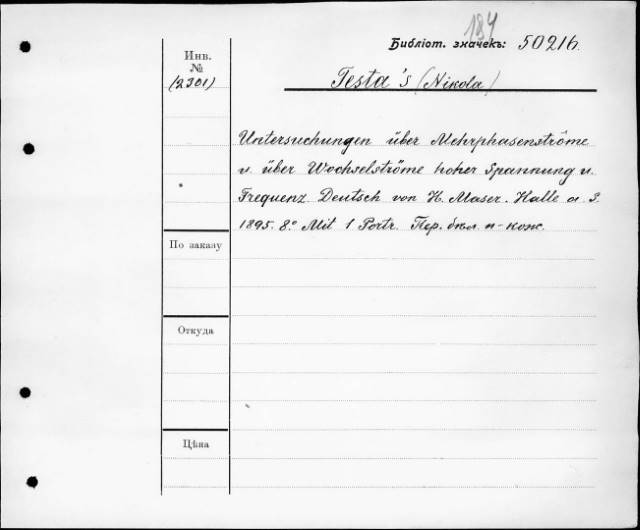 184
Библiот. значекъ: 50216.
Инв.
№
(2301)
Testa's (Nikola)
Untersuchungen über Mehrphasenströme
u. über Wechselströme hoher Spannung u.
Frequenz. Deutsch von H. Maser. Halle a. S.
1895. 8.° Mit 1 Portr. Пер. бкл. п-кож.
По заказу
Откуда
Цѣна